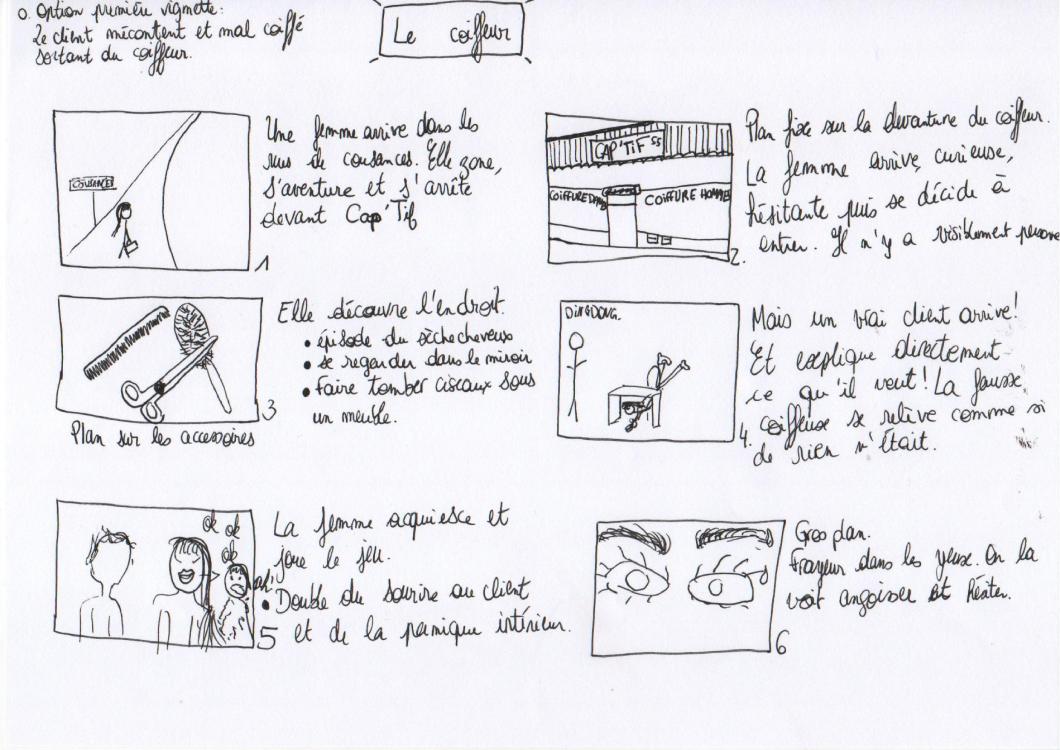 0. Option première vignette:
Le client mécontent et mal coiffé
sortant du coiffeur.
Le coiffeur
COUSANCES
1
Une femme arrive dans les
rues de cousances. Elle zone,
s'aventure et s'arrête
devant Cap'Tif
CAP'TiF'ss
COiFFURE DAMES
COiFFURE HOMMES
2.
Plan fixe sur la devanture du coiffeur.
La femme arrive, curieuse,
hésitante puis se décide à
entrer. Il n'y a visiblement personne
3
Plan sur les accessoires
Elle découvre l'endroit.
• épisode du sèchecheveux
• se regarder dans le miroir
• faire tomber ciseaux sous
un meuble.
DiNGDONG.
4.
Mais un vrai client arrive!
Et explique directement
ce qu'il veut! La fausse
coiffeuse se relève comme si
de rien n'était.
ok ok
ok
ah!
5
La femme acquiesce et
joue le jeu.
• Double du sourire au client
et de la panique intérieur.
6
Gros plan.
Frayeur dans les yeux. On la
voit angoisser et hésiter.